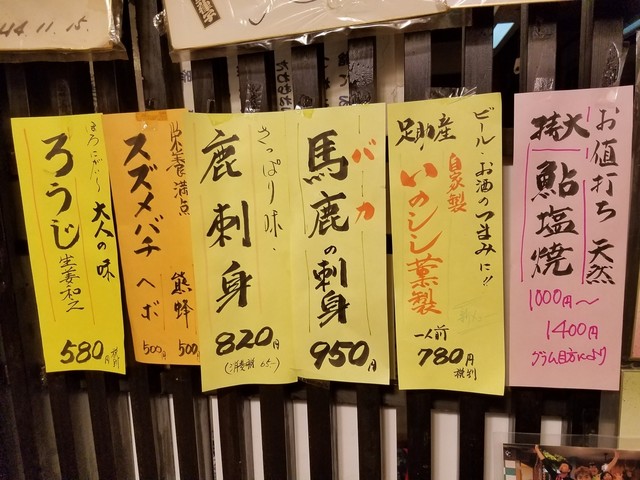 44.11.15.
お値打ち 天然
特大
鮎塩焼
1000円〜
1400円
グラム目方により
ビール・お酒のつまみに!!
足助産
自家製
いのしし薫製
一人前
780円
税別
バカ
馬鹿の刺身
950円
さっぱり味.
鹿刺身
820円
栄養満点
スズメバチ 熊蜂
ヘボ
500円
500円
ほろにがく 大人の味
ろうじ 生姜和え
580円 税別